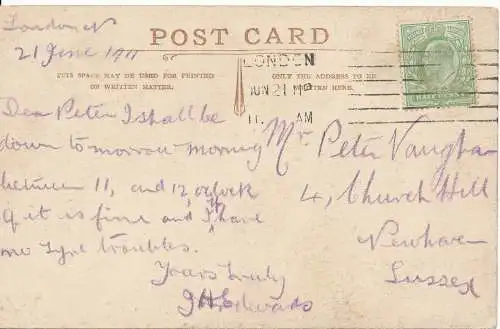 London N
21 June 1911
POST CARD
THIS SPACE MAY BE USED FOR PRINTED
OR WRITTEN MATTER.
ONLY THE ADDRESS TO BE
WRITTEN HERE.
LONDON
JUN 21
11 AM
Dear Peter I shall be
down to morrow morning
between 11, and 12 o'clock
if it is fine and if I have
no tyre troubles.
Yours truly
Edwards
Mr Peter Vaughan
4, Church Hill
Newhaven
Sussex